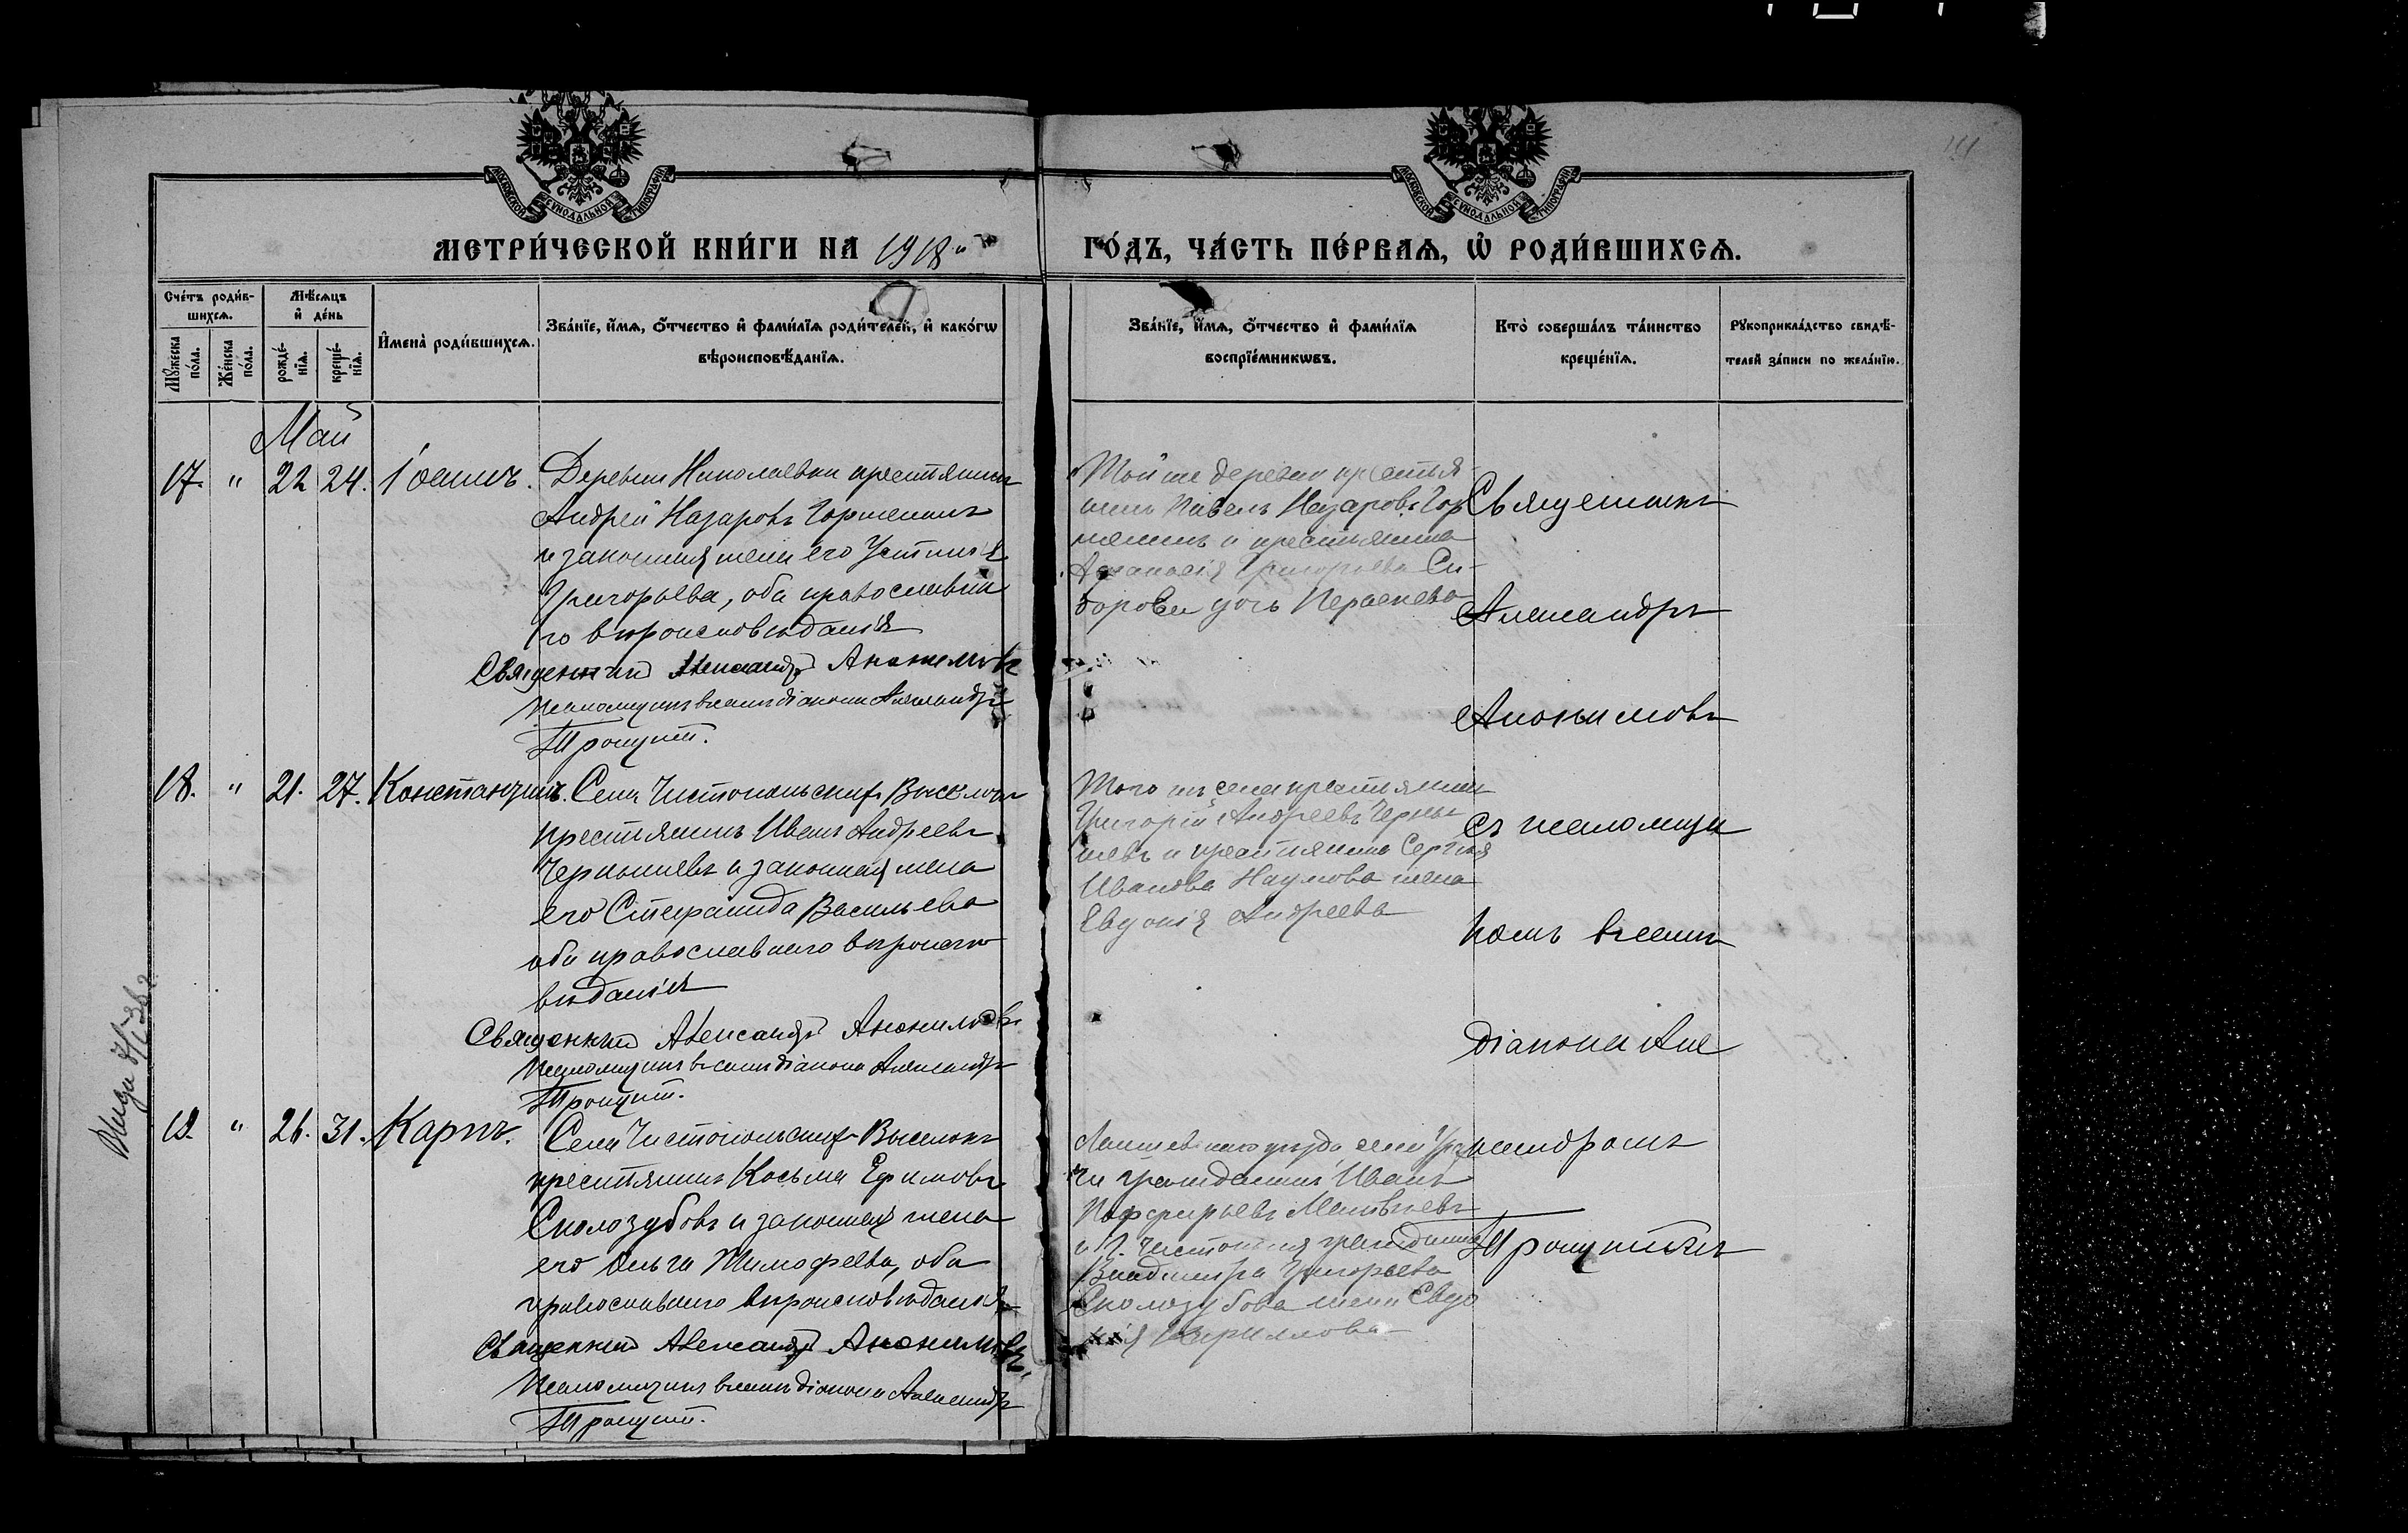 МОСКОВСКОЙ СѴНОДАЛЬНОЙ ТИПОГРАФІИ
МОСКОВСКОЙ СѴНОДАЛЬНОЙ ТИПОГРАФІИ
МЕТРИ́ЧЕСКОЙ КНИ́ГИ НА 1918
ГО́ДЪ, ЧА́СТЬ ПЕ́РВАѦ, Ѡ҆ РОДИ́ВШИХСѦ.
Сче́тъ роди́в-
шихсѧ.
Мꙋ́жеска по́ла.
Же́нска по́ла.
Мѣ́сѧцъ
и҆ де́нь
рожде́-
нїѧ.
креще́-
нїѧ.
И҆мена̀ роди́вшихсѧ.
Зва́нїе, и҆́мѧ, ѻ҆́тчество и҆ фамилїѧ роди́телей, и҆ како́гѡ
вѣроисповѣ́данїѧ.
Зва́нїе, и҆́мѧ, ѻ҆́тчество и҆ фами́лїѧ
воспрїе́мникѡвъ.
Кто̀ соверша́лъ та́инство
креще́нїѧ.
Рꙋкоприкла́дство свидѣ́-
телей за́писи по жела́нїю.
Май
17. " 22 24. Іоаннъ.
Деревни Николаевки крестьянинъ
Андрей Назаровъ Горшенинъ
и законная жена его Устинія
Григорьева, оба православна
го вѣроисповѣданія
Священникъ Александръ Анонимовъ
Псаломщикъ въ санѣ діакона Александръ
Той же деревни крестья-
нинъ Павелъ Назаровъ Гор
шенинъ и крестьянина
Афанасія Григорьева Си-
дорова дочь
Священникъ
Александръ
Анонимовъ
18. " 21. 27. Константинъ.
Села Чистопольскихъ Выселокъ
крестьянинъ Иванъ Андреевъ
Чернышевъ и законная жена
его Стефанида Васильева
оба православнаго вѣроиспо
вѣданія
Священникъ Александръ Анонимовъ
Псаломщикъ въ санѣ діакона Александръ
Того же села крестьянинъ
Григорій Андреевъ Черны
шевъ и крестьянина Сергѣя
Иванова Наумова жена
Евдокія Андреева
съ псаломщи
комъ въ санѣ
діакона Алe
19. " 26. 31. Карпъ.
Села Чистопольскихъ Выселокъ
крестьянинъ Косьма Ефимовъ
Скалозубовъ и законная жена
его Ольга Тимофеева, оба
православнаго вѣроисповѣданія
Священникъ Александръ Анонимовъ
Псаломщикъ въ санѣ діакона Александръ
Лаишевскаго уѣзда села
гражданинъ Иванъ
Порфирьевъ Матвѣевъ
и г. Чистополя гражданина
Владиміра Григорьева
Скалозубова жена Евдо
кія Кириллова
ксандромъ